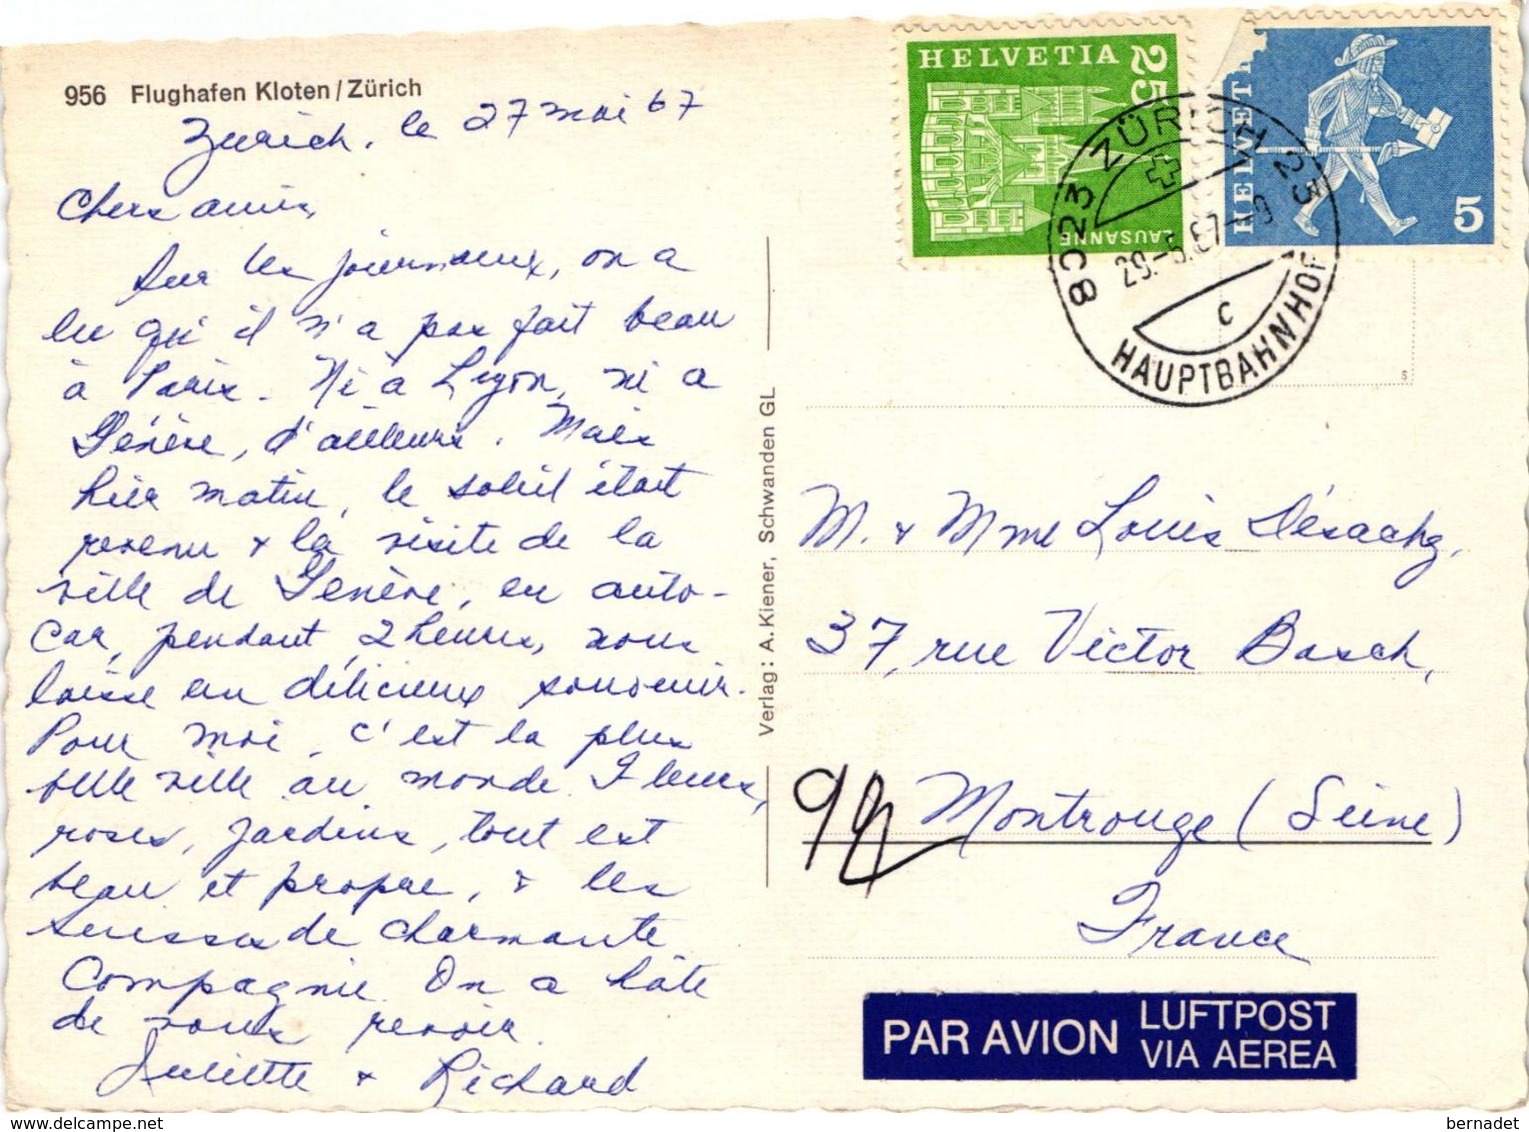 956 Flughafen Kloten / Zürich
Zurich, le 27 mai 67
Chers amis,
Sur les journaux, on a
lu qu'il n'a pas fait beau
à Paris. Ni à Lyon, ni à
Genève, d'ailleurs. Mais
hier matin, le soleil était
revenu & la visite de la
ville de Genève, en auto-
car, pendant 2 heures, nous
laisse un délicieux souvenir.
Pour moi, c'est la plus
belle ville au monde. Fleurs,
roses, jardins, tout est
beau et propre, & les
Suisses de charmante
compagnie. On a hâte
de vous revoir.
Juliette & Richard
Verlag: A. Kiener, Schwanden GL
HELVETIA 25
LAUSANNE
HELVETIA 5
8023 ZÜRICH 23
29.-5.67-9
C
HAUPTBAHNHOF
S
M. & Mme Louis Désachy,
37, rue Victor Basch,
92 Montrouge (Seine)
France
PAR AVION LUFTPOST
VIA AEREA
bernadet